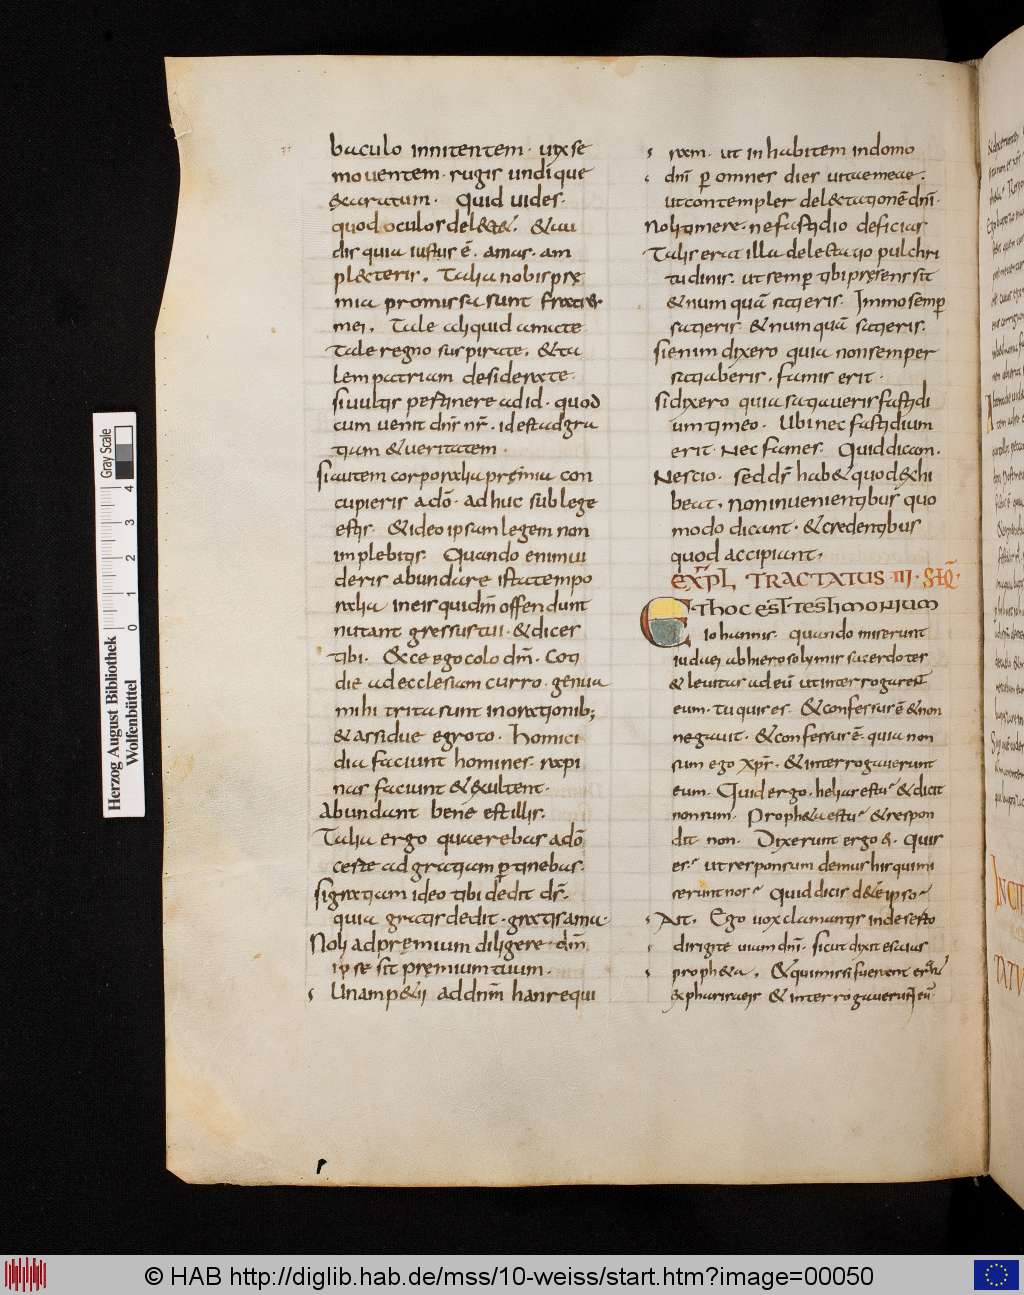 baculo innitentem· uixse
mouentem· rugis undique
&aratum· Quid uides·
quod oculos del&&· &au
dis quia iustus ē· amas· am
pl&teris· Talia nobis pre
mia promissa sunt fratres
mei· Tale aliquid amate
tale regno suspirate· &ta
lem patriam desiderate·
si uultis pertinere ad id· quod
cum uenit dn̄s nr̄· id est ad gra
tiam &ueritatem·
si autem corporalia premia con
cupieris a dō· adhuc sub lege
estis· &ideo ipsam legem non
implebitis· Quando enim ui
deris abundare ista tempo
ralia in eis qui dm̄ offendunt
nutant gressus tui·&dices
tibi· Ecce ego colo dm̄· Coti
die ad ecclesiam curro· genua
mihi trita sunt in orationib;
&assidue egroto· Homici
dia faciunt homines· rapi
nas faciunt &exultent·
Abundant bene est illis·
Talia ergo quaerebas a dō
certe ad gratiam ꝑtinebas·
si gratiam ideo tibi dedit dn̄s·
quia gratis dedit· gratis ama·
Noli ad premium diligere dm̄
ipse sit premium tuum·
s Unam p&ii ad dn̄m hanc requi
s ram· ut inhabitem in domo
dn̄i ꝑ omnes dies uitae meae·
ut contempler del&tationē dn̄i·
Noli timere· ne fastidio deficias
Talis erit illa delectatio pulchri
tudinis· ut semꝑ tibi presens sit
&numquā satieris· Immo semꝑ
satieris &numquā satieris·
si enim dixero quia non semper
satiaberis· famis erit·
si dixero quia satiaueris fastidi
um timeo· Ubi nec fastidium
erit· nec fames· Quid dicam·
Nescio· sed dn̄s hab& quod exhi
beat· non inuenientibus quo
modo dicant· &credentibus
quod accipiant·
EXPL TRACTATUS III·
Et hoc est testimonium
Iohannis· quando miserunt
iudaei ab hierosolymis sacerdotes
&leuitas ad eū ut interrogarent
eum· tu quis es· &confessus ē &non
negauit· &confessus ē· quia non
sum ego xps̄· &interrogauerunt
eum· Quid ergo· helias es tu· &dicit
non sum· Propheta es tu· &respon
dit non· Dixerunt ergo ei· Quis
es· ut responsum demus his qui mi
serunt nos· Quid dicis de te ipso·
s Ait· Ego uox clamantis in deserto
dirigite uiam dn̄i· sicut dixit esaias
s proph&a· &qui missi fuerant erant
ex pharisaeis &interrogauerunt eū
Gray Scale
0 1 2 3 4
Herzog August Bibliothek
Wolfenbüttel
© HAB http://diglib.hab.de/mss/10-weiss/start.htm?image=00050